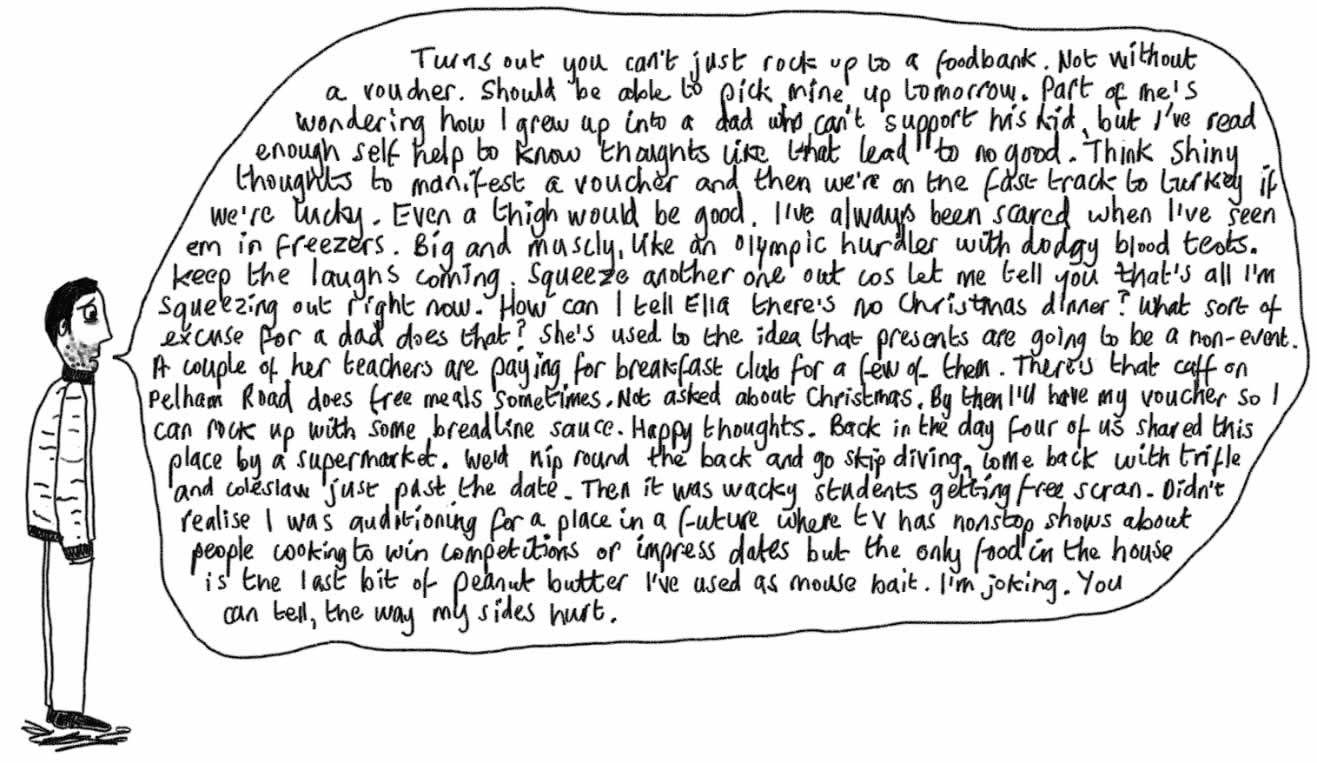 Turns out you can't just rock up to a foodbank. Not without
a voucher. Should be able to pick mine up tomorrow. Part of me's
wondering how I grew up into a dad who can't support his kid, but I've read
enough self help to know thoughts like that lead to no good. Think shiny
thoughts to manifest a voucher and then we're on the fast track to turkey if
we're lucky. Even a thigh would be good. I've always been scared when I've seen
em in freezers. Big and muscly, like an Olympic hurdler with dodgy blood tests.
Keep the laughs coming. Squeeze another one out cos let me tell you that's all I'm
squeezing out right now. How can I tell Ella there's no Christmas dinner? What sort of
excuse for a dad does that? She's used to the idea that presents are going to be a non-event.
A couple of her teachers are paying for breakfast club for a few of them. There's that caff on
Pelham Road does free meals sometimes. Not asked about Christmas. By then I'll have my voucher so I
can rock up with some breadline sauce. Happy thoughts. Back in the day four of us shared this
place by a supermarket. We'd nip round the back and go skip diving, come back with trifle
and coleslaw just past the date. Then it was wacky students getting free scran. Didn't
realise I was auditioning for a place in a future where tv has nonstop shows about
people cooking to win competitions or impress dates but the only food in the house
is the last bit of peanut butter I've used as mouse bait. I'm joking. You
can tell, the way my sides hurt.